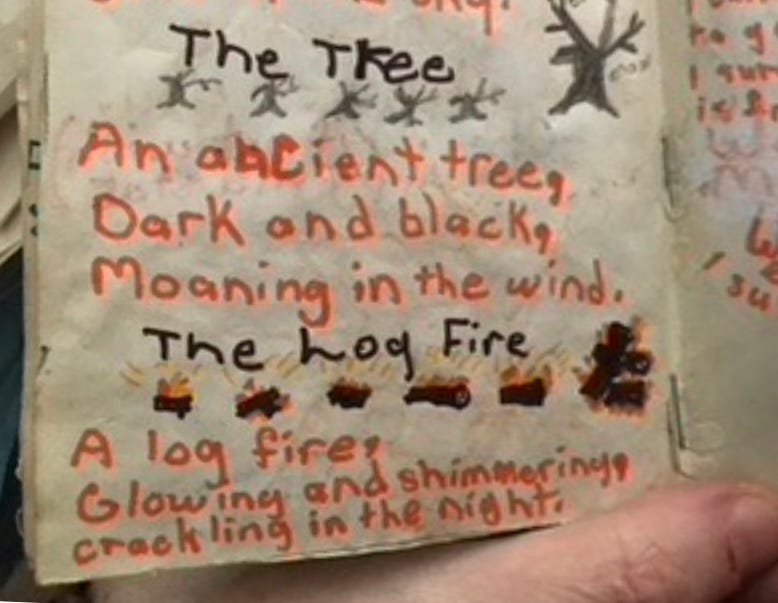 The Tree
An ancient tree,
Dark and black,
Moaning in the wind.
The Log Fire
A log fire,
Glowing and shimmering,
crackling in the night.